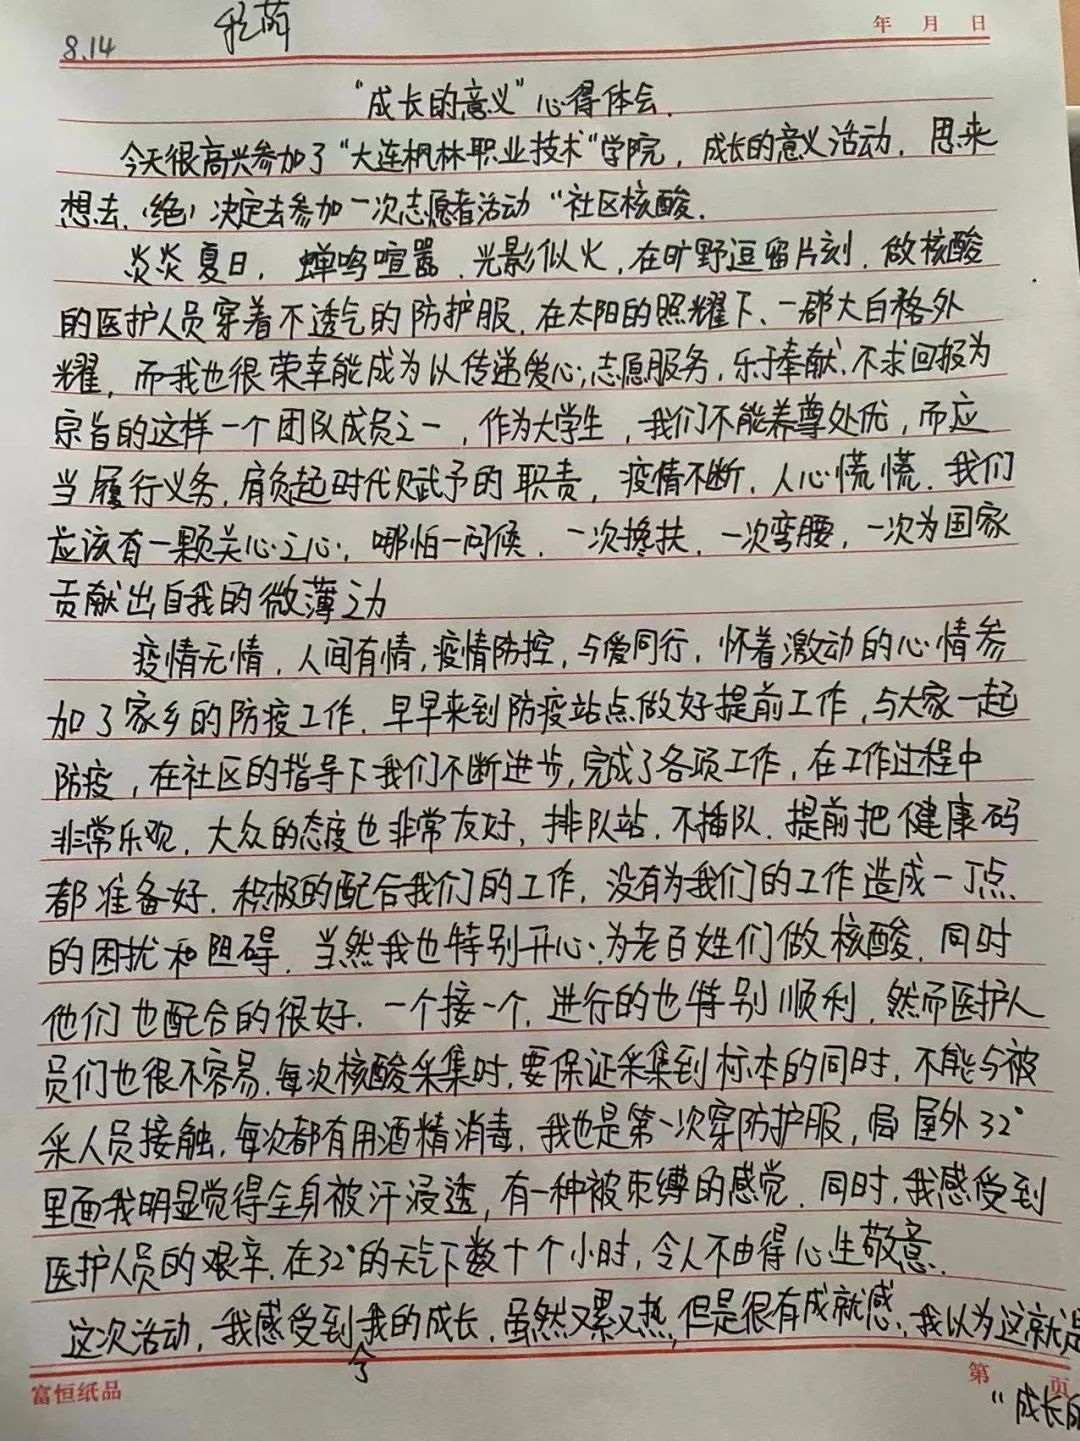 8.14
年 月 日
“成长的意义”心得体会.
今天很高兴参加了“大连枫林职业技术”学院，成长的意义活动．思来
想去、(绝)决定去参加一次志愿者活动“社区核酸.
炎炎夏日，蝉鸣喧嚣．光影似火，在旷野逗留片刻．做核酸
的医护人员穿着不透气的防护服．在太阳的照耀下、一群大白格外
耀，而我也很荣幸能成为以传递爱心；志愿服务，乐于奉献、不求回报为
宗旨的这样一个团队成员之一，作为大学生，我们不能养尊处优，而应
当履行义务．肩负起时代赋予的职责，疫情不断．人心慌慌．我们
应该有一颗关心之心，哪怕一问候．一次搀扶．一次弯腰，一次为国家
贡献出自我的微薄之力
疫情无情，人间有情，疫情防控，与爱同行，怀着激动的心情参
加了家乡的防疫工作．早早来到防疫站点做好提前工作，与大家一起
防疫，在社区的指导下我们不断进步，完成了各项工作，在工作过程中
非常乐观，大众的态度也非常友好，排队站．不插队．提前把健康码
都准备好．积极的配合我们的工作，没有为我们的工作造成一丁点
的困扰和阻碍．当然我也特别开心．为老百姓们做核酸．同时
他们也配合的很好．一个接一个．进行的也特别顺利．然而医护人
员们也很不容易．每次核酸采集时．要保证采集到标本的同时．不能与被
采人员接触．每次都有用酒精消毒．我也是第一次穿防护服，屋外32°
里面我明显觉得全身被汗浸透，有一种被束缚的感觉．同时，我感受到
医护人员的艰辛．在32°的天气下数十个小时，令人不由得心生敬意.
这次活动，我感受到了我的成长．虽然又累又热，但是很有成就感．我以为这就是
富恒纸品
第 页
“成长的